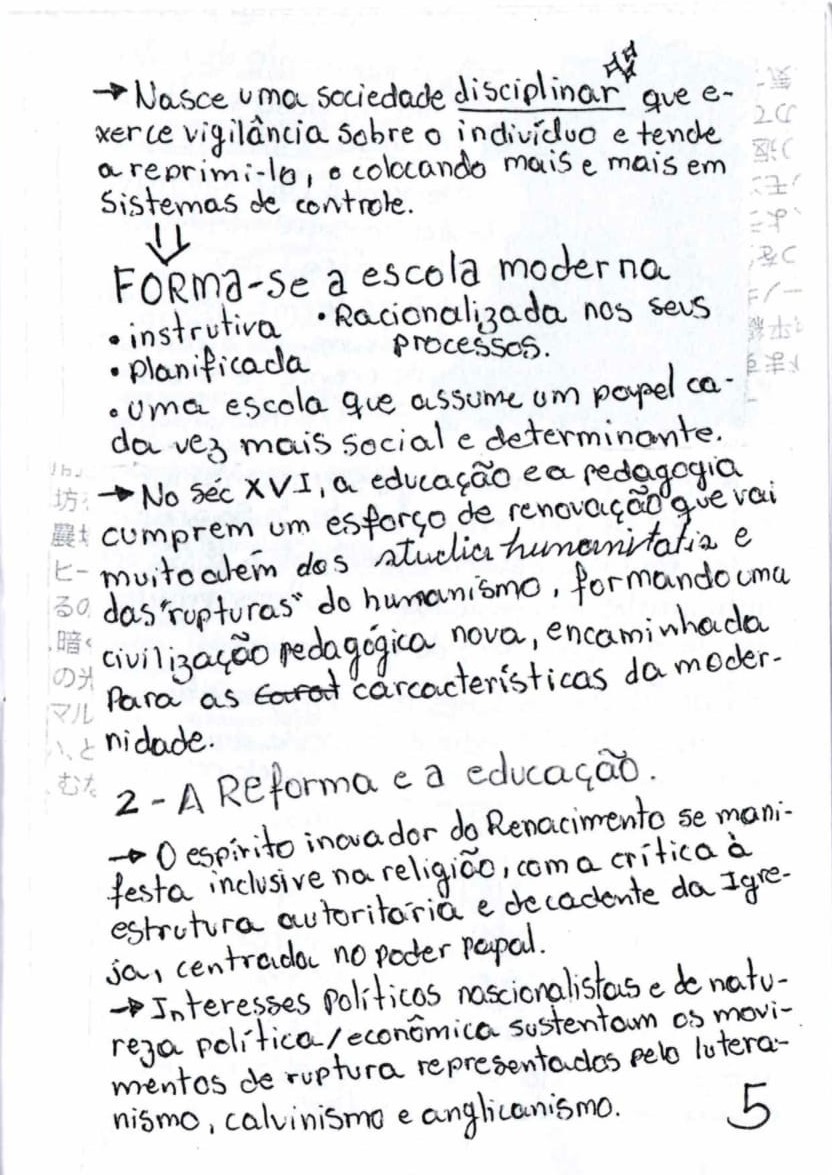 → Nasce uma sociedade disciplinar que e-
xerce vigilância sobre o indivíduo e tende
a reprimi-lo, o colocando mais e mais em
sistemas de controle.
⇓
FORMA-se a escola moderna
• instrutiva
• planificada
• Racionalizada nos seus
processos.
• uma escola que assume um papel ca-
da vez mais social e determinante.
→ No séc XVI, a educação e a pedagogia
cumprem um esforço de renovação que vai
muito além dos studia humanitatis e
das "rupturas" do humanismo, formando uma
civilização pedagógica nova, encaminhada
para as carcacterísticas da moder-
nidade.
2 - A Reforma e a educação.
→ O espírito inovador do Renacimento se mani-
festa inclusive na religião, com a crítica à
estrutura autoritária e decadente da Igre-
ja, centrada no poder papal.
→ Interesses políticos nascionalistas e de natu-
reza política/econômica sustentam os movi-
mentos de ruptura representados pelo lutera-
nismo, calvinismo e anglicanismo.
5
坊
農
ヒー
るの
暗く
の光
マル
い、と
むな